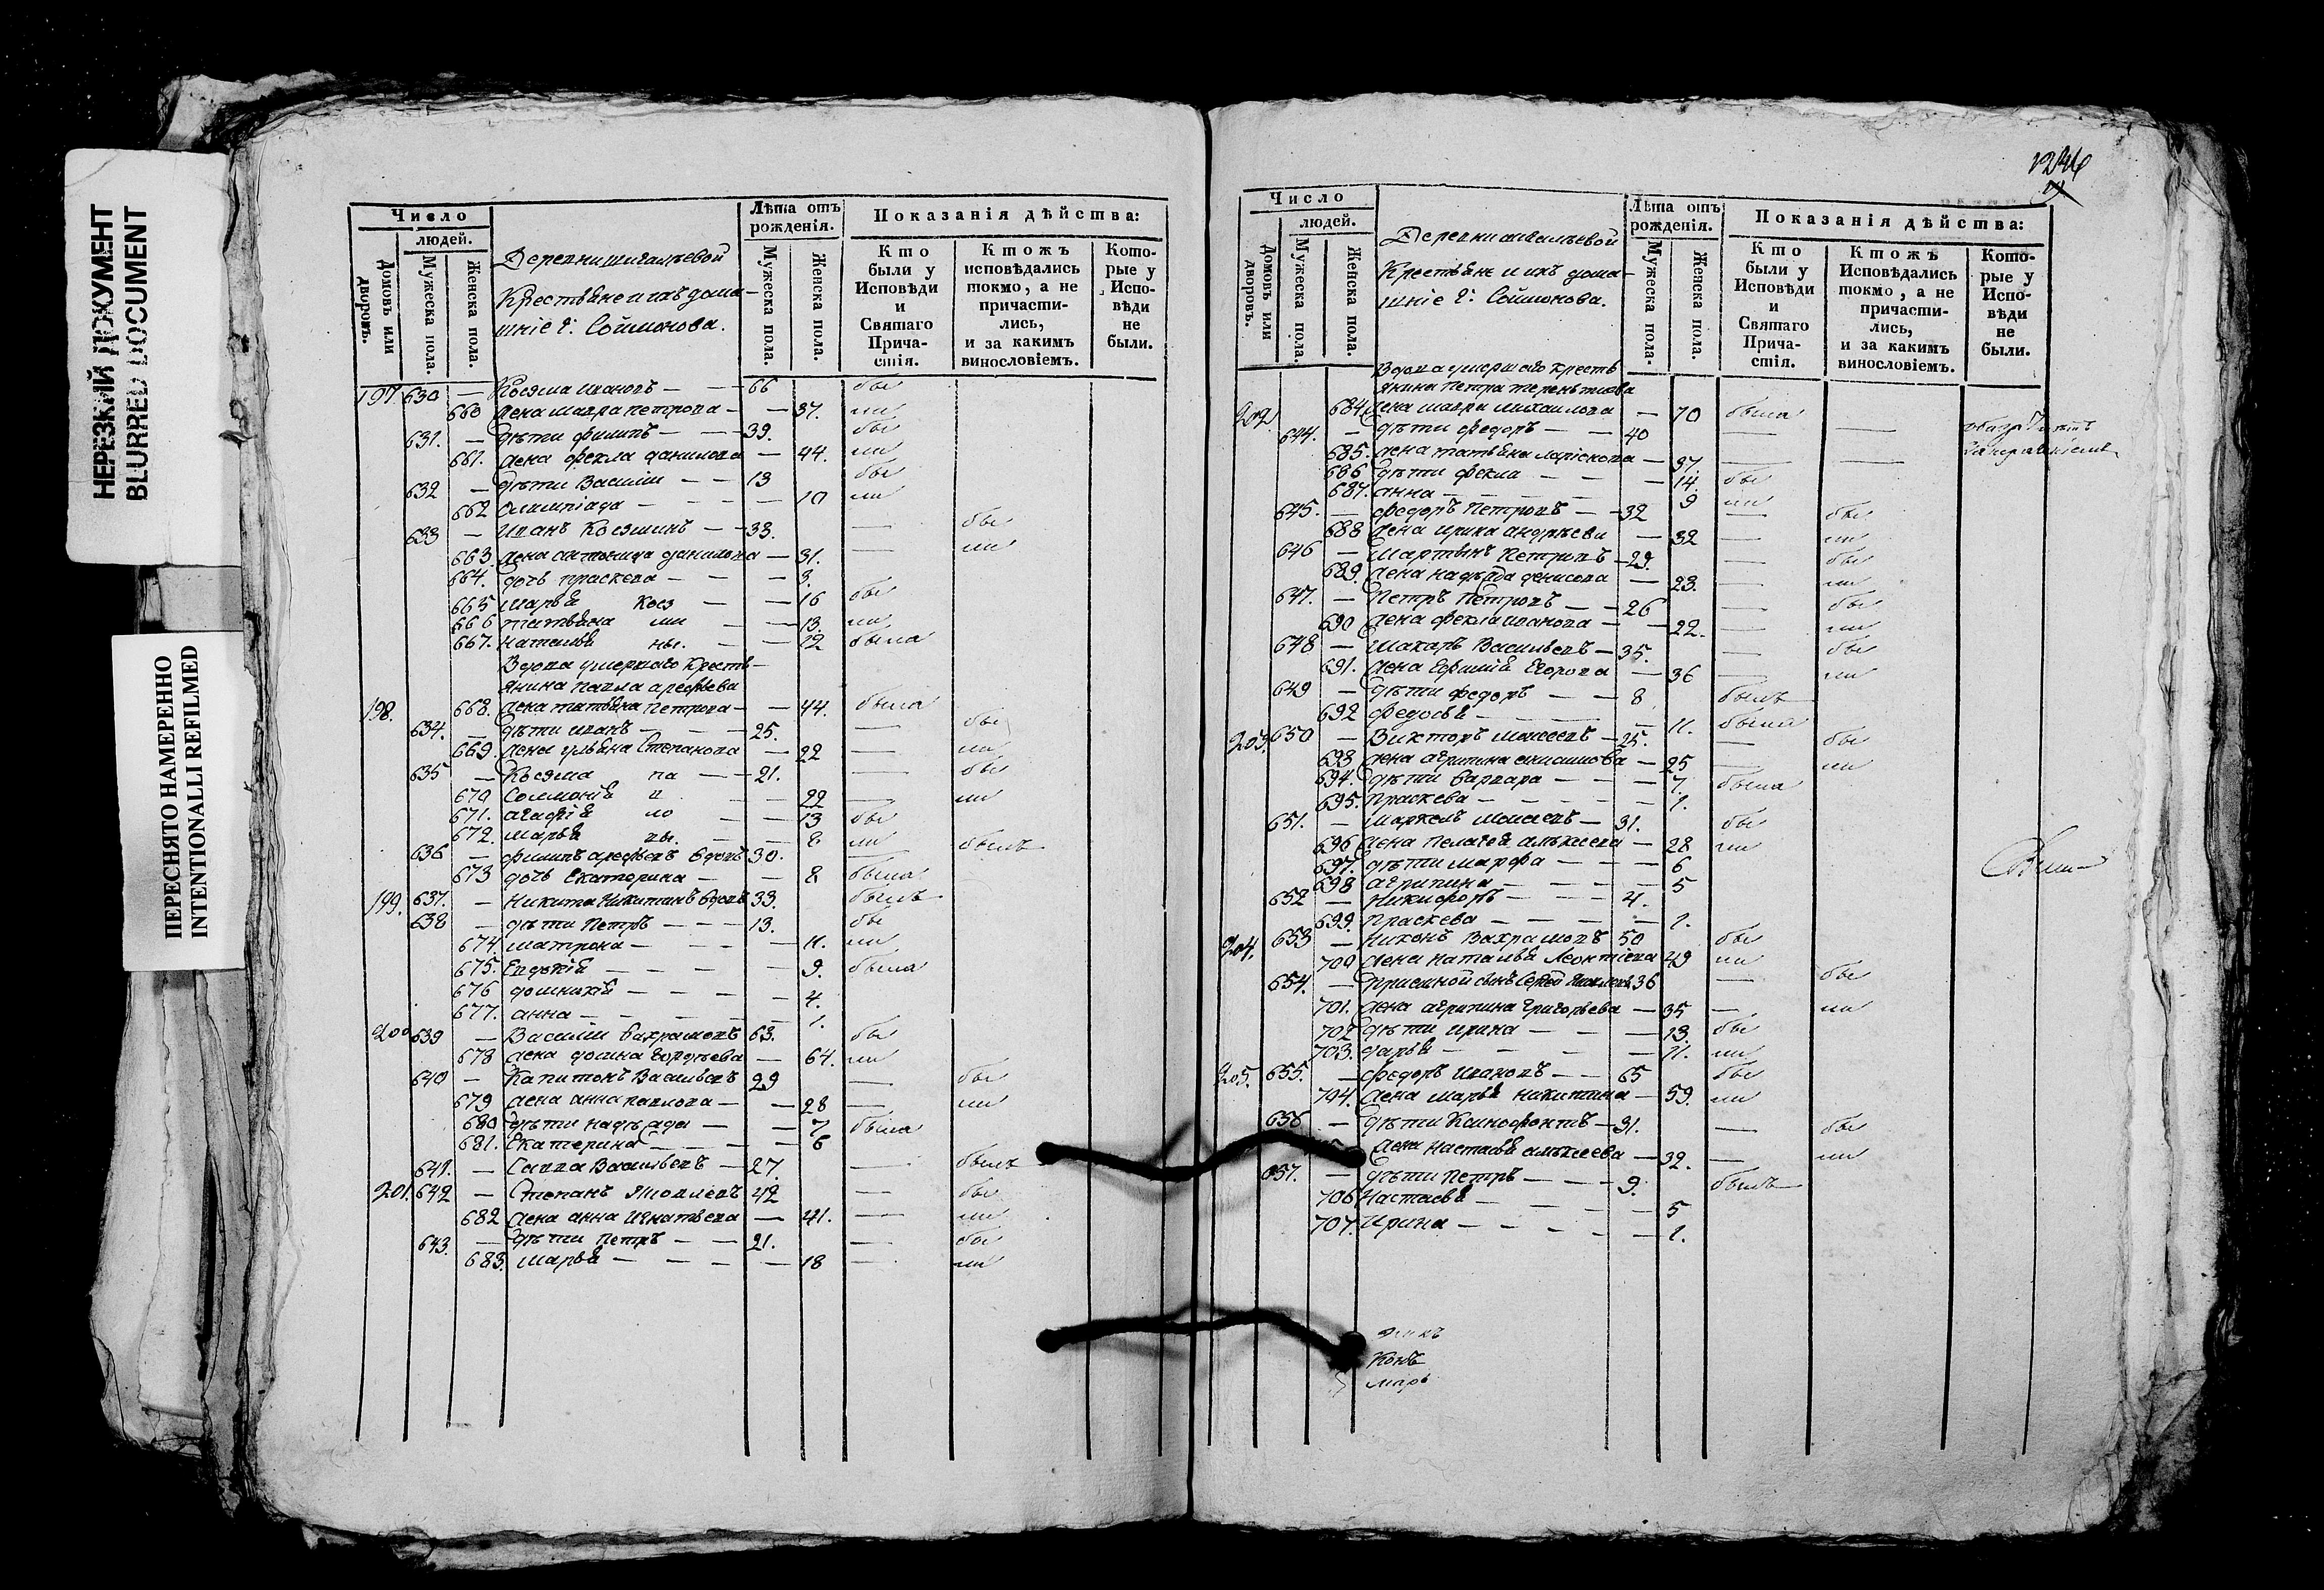 НЕРЕЗКИЙ ДОКУМЕНТ
BLURRED DOCUMENT
ПЕРЕСНЯТО НАМЕРЕННО
INTENTIONALLI REFILMED
Число
людей.
Домовъ или дворовъ.
Мужеска пола.
Женска пола.
Деревни
Крестьяне и ихъ дома-
шніе г: Соймонова.
Лѣта отъ рожденія.
Мужеска пола.
Женска пола.
Показанія дѣйства:
Кто были у Исповѣди и Святаго Прича-стія.
Ктожъ исповѣдались токмо, а не причасти-лись, и за какимъ винословіемъ.
Кото-рые у Испо-вѣди не были.
197. 630 — Козма Ивановъ — — 66 бы
660 Жена Мавра Петрова — — 37. ли
631. — дѣти Филипъ — — 39. бы
661. Жена Фекла Данилова — 44. ли
632 — дѣти Василий — — 13 бы
662 Олимпіада — — — 10 ли
633 — Иванъ Козминъ — — 33. — бы
663. Жена Данилова — 31. — ли
664. дочь Праскева — — — 3.
665 Марья Коз — — 16 бы
666 Татьяна ми — — 13. ли
667. Наталья ны. — — 12 была
Вдова умершаго кресть-
янина Павла Арефьева
198. 668. Жена Татьяна Петрова — — 44. была
634. — дѣти Иванъ — — — 25. — бы
669. Жена Ульяна Степанова — 22 — ли
635 — Козма па — — 21. — бы
670 Соломонія в — — 22 — ли
671. Агафія ло — — 13 бы
672. Марья вы. — — 8 ли
636 — Филипъ Арефьевъ вдовъ 30. — былъ
673 дочь Екатерина — — 8 была
199. 637. — Никита Никитинъ вдовъ 33. былъ
638 — дѣти Петръ — — — 13. бы
674 Матрона — — — 11. ли
675. Евдокія — — — — 9. была
676 Домникія — — — — 4.
677. Анна — — — — 1.
200 639 — Василий Вахрамовъ 63. бы
678 Жена Домна Гордѣева — 64. ли
640 — Капитонъ Васильевъ 29 — бы
679 Жена Анна Павлова — — 28 — ли
680 дѣти Надежда — — 7 была
681. Екатерина — — — — 6
641. — Савва Васильевъ — 27. — былъ
201. 642 — Степанъ Яковлевъ 42 — бы
682 Жена Анна Игнатьева — 41. — ли
643. — дѣти Петръ — — 21. — бы
683. Марья — — — — 18 — ли
Число
людей.
Домовъ или дворовъ.
Мужеска пола.
Женска пола.
Деревни
Крестьяне и ихъ дома-
шніе г: Соймонова.
Лѣта отъ рожденія.
Мужеска пола.
Женска пола.
Показанія дѣйства:
Кто были у Исповѣди и Святаго Прича-стія.
Ктожъ Исповѣдались токмо, а не причасти-лись, и за какимъ винословіемъ.
Кото-рые у Испо-вѣди не были.
Вдова умершаго кресть
янина Петра Терентьева
202 684 Жена Мавра Михаилова — 70 была —
644. — дѣти Федоръ — — 40 — —
685. Жена Татьяна — 37. — —
686 дѣти Фекла — — — 14. бы
687. Анна — — — — 9 ли
645. — Федоръ Петровъ — — 32 — бы
688 Жена Ирина Андрѣева — 32 — ли
646 — Мартынъ Петровъ — 29. — бы
689. Жена Надежда Денисова — 23. — ли
647. — Петръ Петровъ — — 26 — бы
690 Жена Фекла Иванова — — 22. — ли
648 — Макаръ Васильевъ — 35. — бы
691. Жена Ефимія Егорова — 36 — ли
649 — дѣти Федоръ — — 8 былъ
692 Федосья — — — — 11. была
203. 650 — Викторъ Моисеевъ — 25. — бы
693 Жена Агрипина — 25 — ли
694. дѣти Варвара — — — 7. была
695. Праскева — — — — 1.
651. — Маркелъ Моисеевъ — 31. бы
696 Жена Пелагея Алексеева — 28 ли
697. дѣти Марфа — — — 6
698 Агрипина — — — — 5
652 — Никифоръ — — — 4.
699. Праскева — — — — 1.
204. 653 — Никонъ Вахрамовъ 50 бы
700 Жена Наталья Леонтіева 49 ли
654. — Приемной сынъ Сергей 36 — бы
701. Жена Агрипина Григорьева — 35 — ли
702 дѣти Ирина — — — 13. бы
703. Дарья — — — — 11. ли
205. 655. — Федоръ Ивановъ — — 65 бы
704. Жена Марья Никитина — 59. ли
656 — дѣти Ксенофонтъ — 31. — бы
Жена Настасья Алексеева — 32. — ли
657. — дѣти Петръ — — — 9. былъ
706 Настасья — — — — 5
707. Ирина — — — — 1.